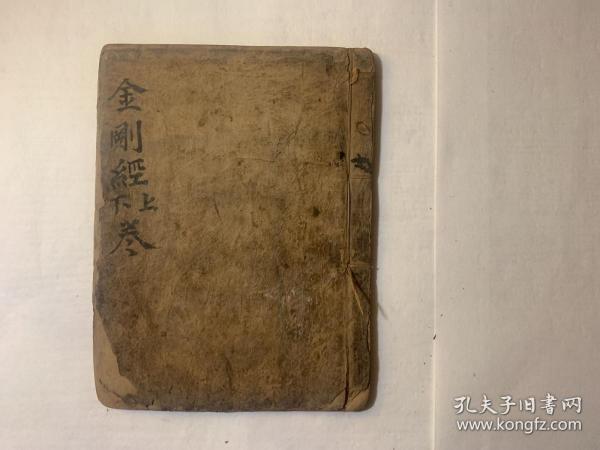 金剛經上下卷
孔夫子旧書网
www.kongfz.com